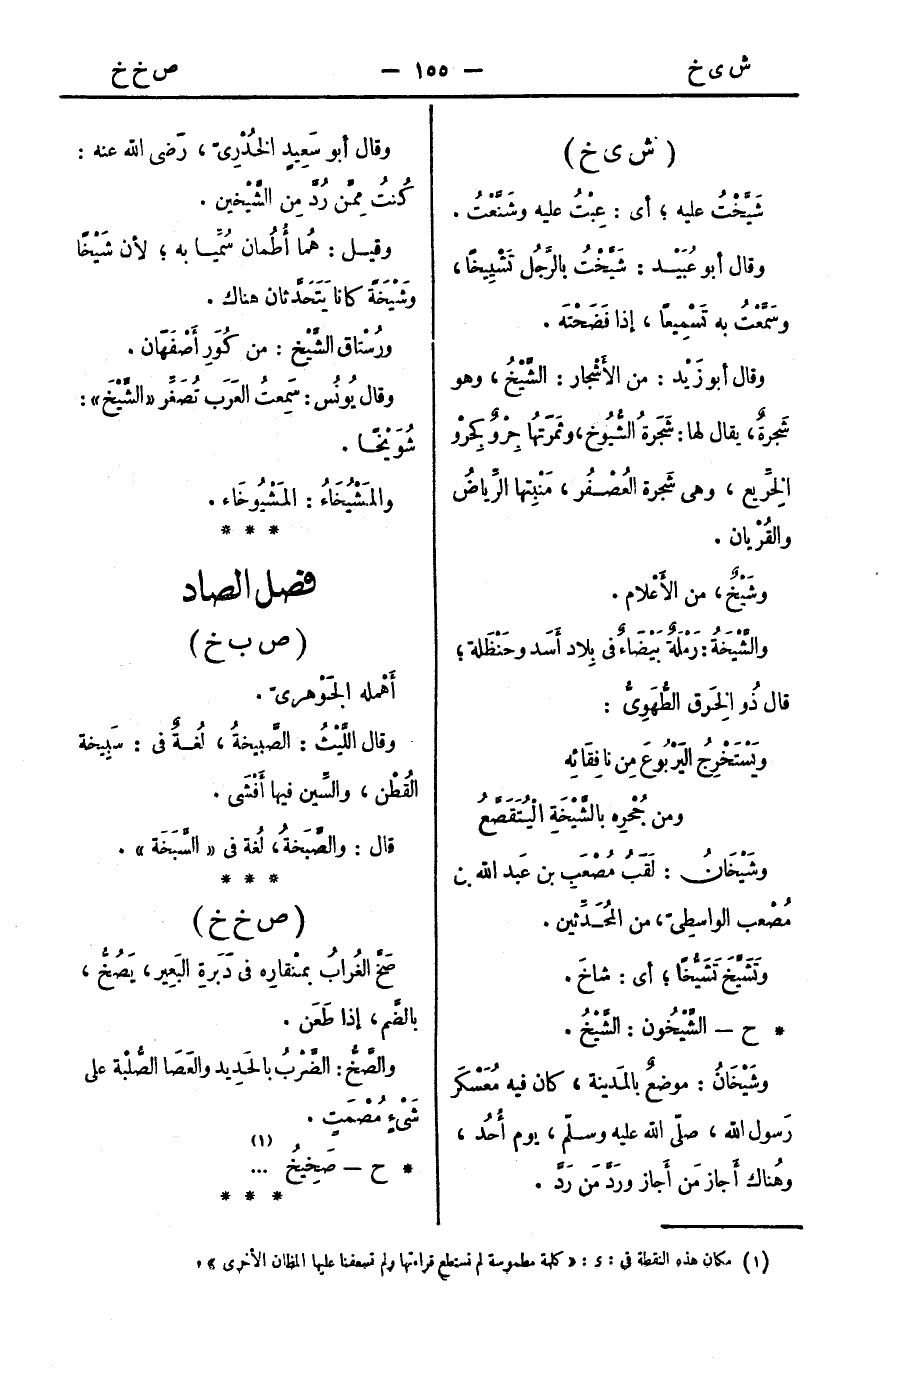 ش ى خ
— ١٥٥ —
ص خ خ
( ش ى خ )
شَيَّخْتُ عليه ؛ أى : عِبْتُ عليه وشَنَّعْتُ .
وقال أبو عُبَيْد : شَيَّخْتُ بالرَّجُل تَشْيِيخًا ،
وسَمَّعْتُ به تَسْمِيعًا ، إذا فَضَحْتَه .
وقال أبو زَيْد : من الأَشْجار : الشَّيْخُ ، وهو
شَجرةٌ ، يقال لها : شَجَرَةُ الشُّيُوخ، وثَمَرَتها جِرْوٌ كجِرْو
الخِرِّيع ، وهى شَجرة العُصْفُر ، مَنْبِتها الرِّياضُ
والقُرْيان .
وشَيْخٌ ، من الأَعْلام .
والشَّيْخَةُ : رَمْلَةٌ بَيْضَاءُ فى بِلاد أَسَد وحَنْظَلة ؛
قال ذُو الخِرَق الطُّهَوِىُّ :
ويَسْتَخْرِجُ اليَرْبُوعَ مِن نافِقَائِه
ومن جُحْرِه بالشَّيْخَةِ الْيُتَقَصَّعُ
وشَيْخَانُ : لَقَبُ مُصْعَبِ بن عَبد الله بن
مُصْعب الواسِطِىّ ، من المُحَدِّثين .
وتَشَيَّخَ تَشَيُّخًا ؛ أى : شاخَ .
* ح — الشَّيْخُون : الشَّيْخُ .
وشَيْخَانُ : موضعٌ بالمَدينة ، كان فيه مُعَسْكَر
رَسول الله ، صلّى الله عليه وسلّم ، يوم أُحُد ،
وهُناك أَجاز مَن أَجاز ورَدَّ مَن رَدَّ .
وقال أبو سَعِيدٍ الخُدْرِىّ ، رَضى الله عنه :
كُنتُ مِمَّن رُدَّ مِن الشَّيْخين .
وقيل : هُما أُطُمان سُمِّيا به ؛ لأن شَيْخًا
وشَيْخَةً كانا يَتَحَدَّثان هناك .
ورُسْتاق الشَّيْخ : من كُوَرِ أَصْفَهَان .
وقال يُونُس : سَمِعتُ العَرَب تُصَغِّر «الشَّيْخَ» :
شُوَيْخًا .
والمَشْيُخَاءُ : المَشْيُوخَاء .
* * *
فصل الصاد
( ص ب خ )
أَهْمله الجَوْهرىّ .
وقال اللَّيْثُ : الصَّبِيخةُ ، لُغةٌ فى : سَبِيخة
القُطْن ، والسِّين فيها أَفْشَى .
قال : والصَّبَخةُ ، لُغة فى « السَّبَخَة » .
* * *
( ص خ خ )
صَخَّ الغُرابُ بمنْقاره فى دَبَرةِ البَعِير ، يَصُخُّ ،
بالضَّم ، إذا طَعَن .
والصَّخُّ : الضَّرْبُ بالحَدِيد والعَصَا الصُّلْبة على
شَىْءٍ مُصْمَتٍ .
* ح — صَخِيخُ ... (١)
* * *
(١) مكان هذه النقطة فى : ى : « كلمة مطموسة لم نستطع قراءتها ولم تسعفنا عليها المظان الأخرى » .